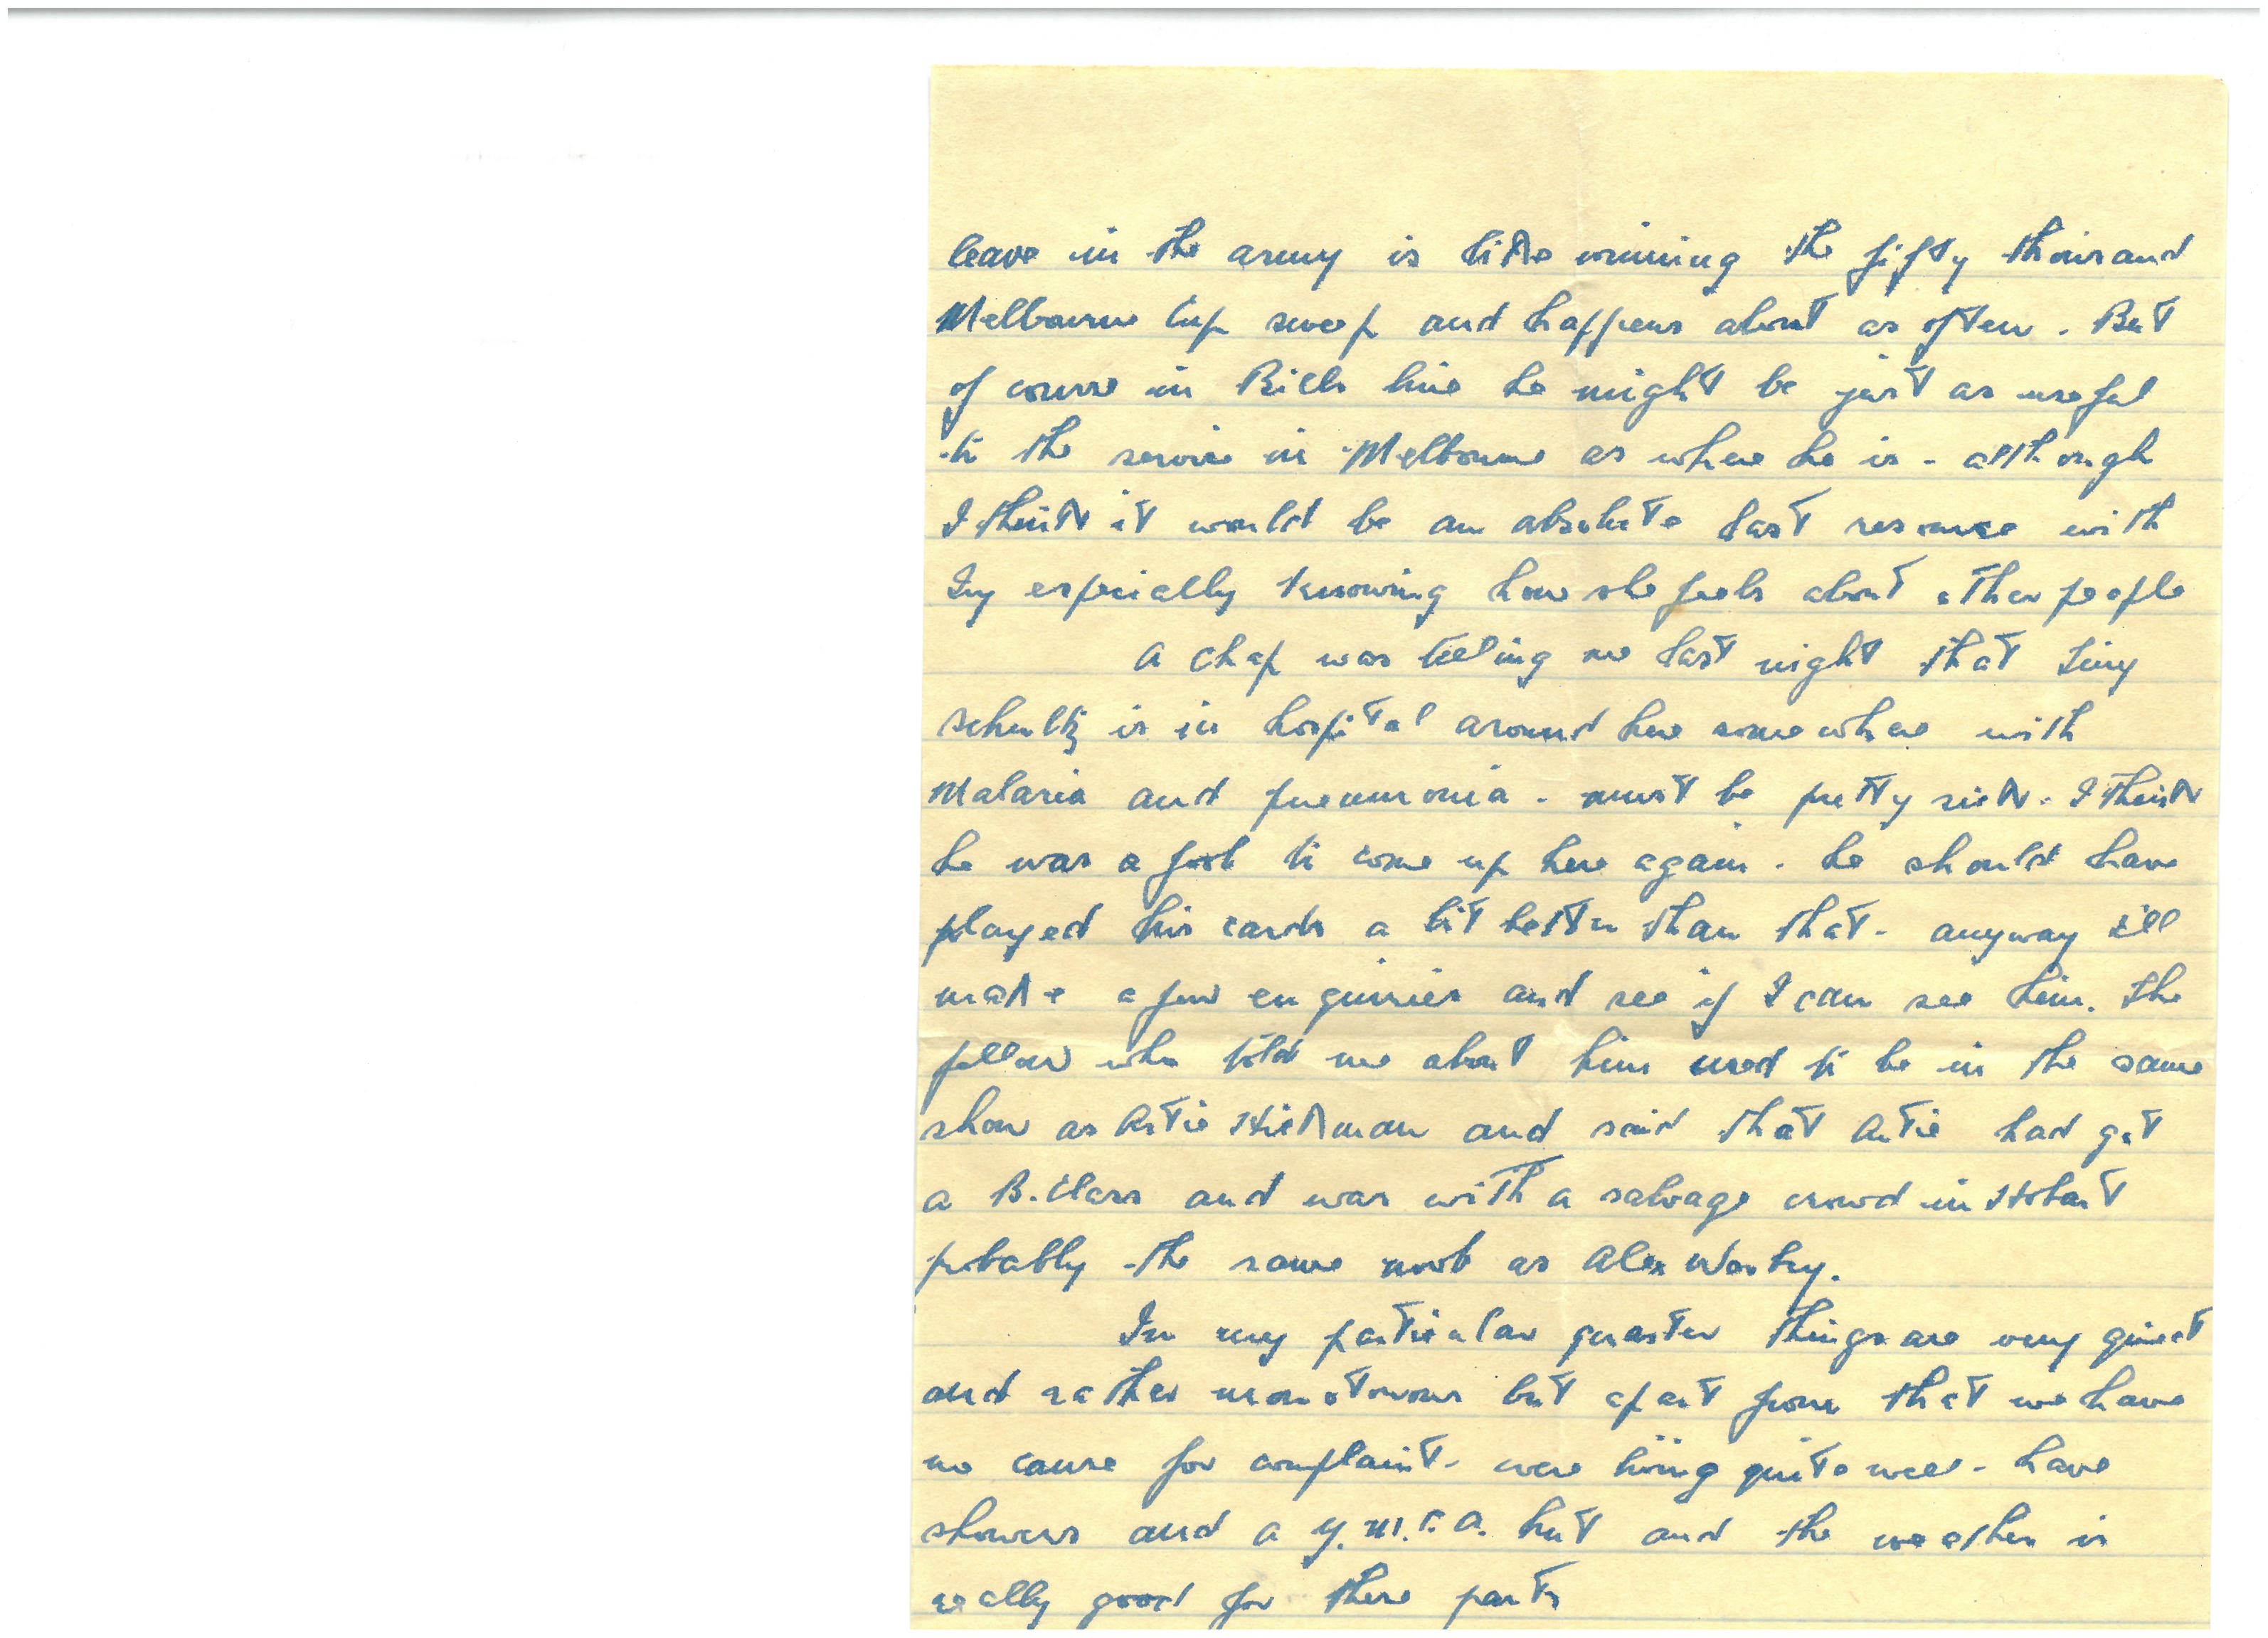 leave in the army is like winning the fifty thousand
Melbourne Cup sweep and happens about as often. But
of course in Bills line he might be just as useful
to the service in Melbourne as where he is - although
I think it would be an absolute last resource with
Ivy especially knowing how she feels about other people
A chap was telling me last night that Tiny
Schultz is in hospital around here somewhere with
Malaria and pneumonia - must be pretty sick. I think
he was a fool to come up here again. he should have
played his cards a bit better than that. anyway I'll
make a few enquiries and see if I can see him. The
fellow who told me about him used to be in the same
show as Artie Hickman and said that Artie had got
a B. Class and was with a salvage crowd in Hobart
probably the same mob as Alex
In my particular quarter things are very quiet
and rather monotonous but apart from that we have
no cause for complaint. were living quite well - have
showers and a Y.M.C.A. hut and the weather is
really good for these parts